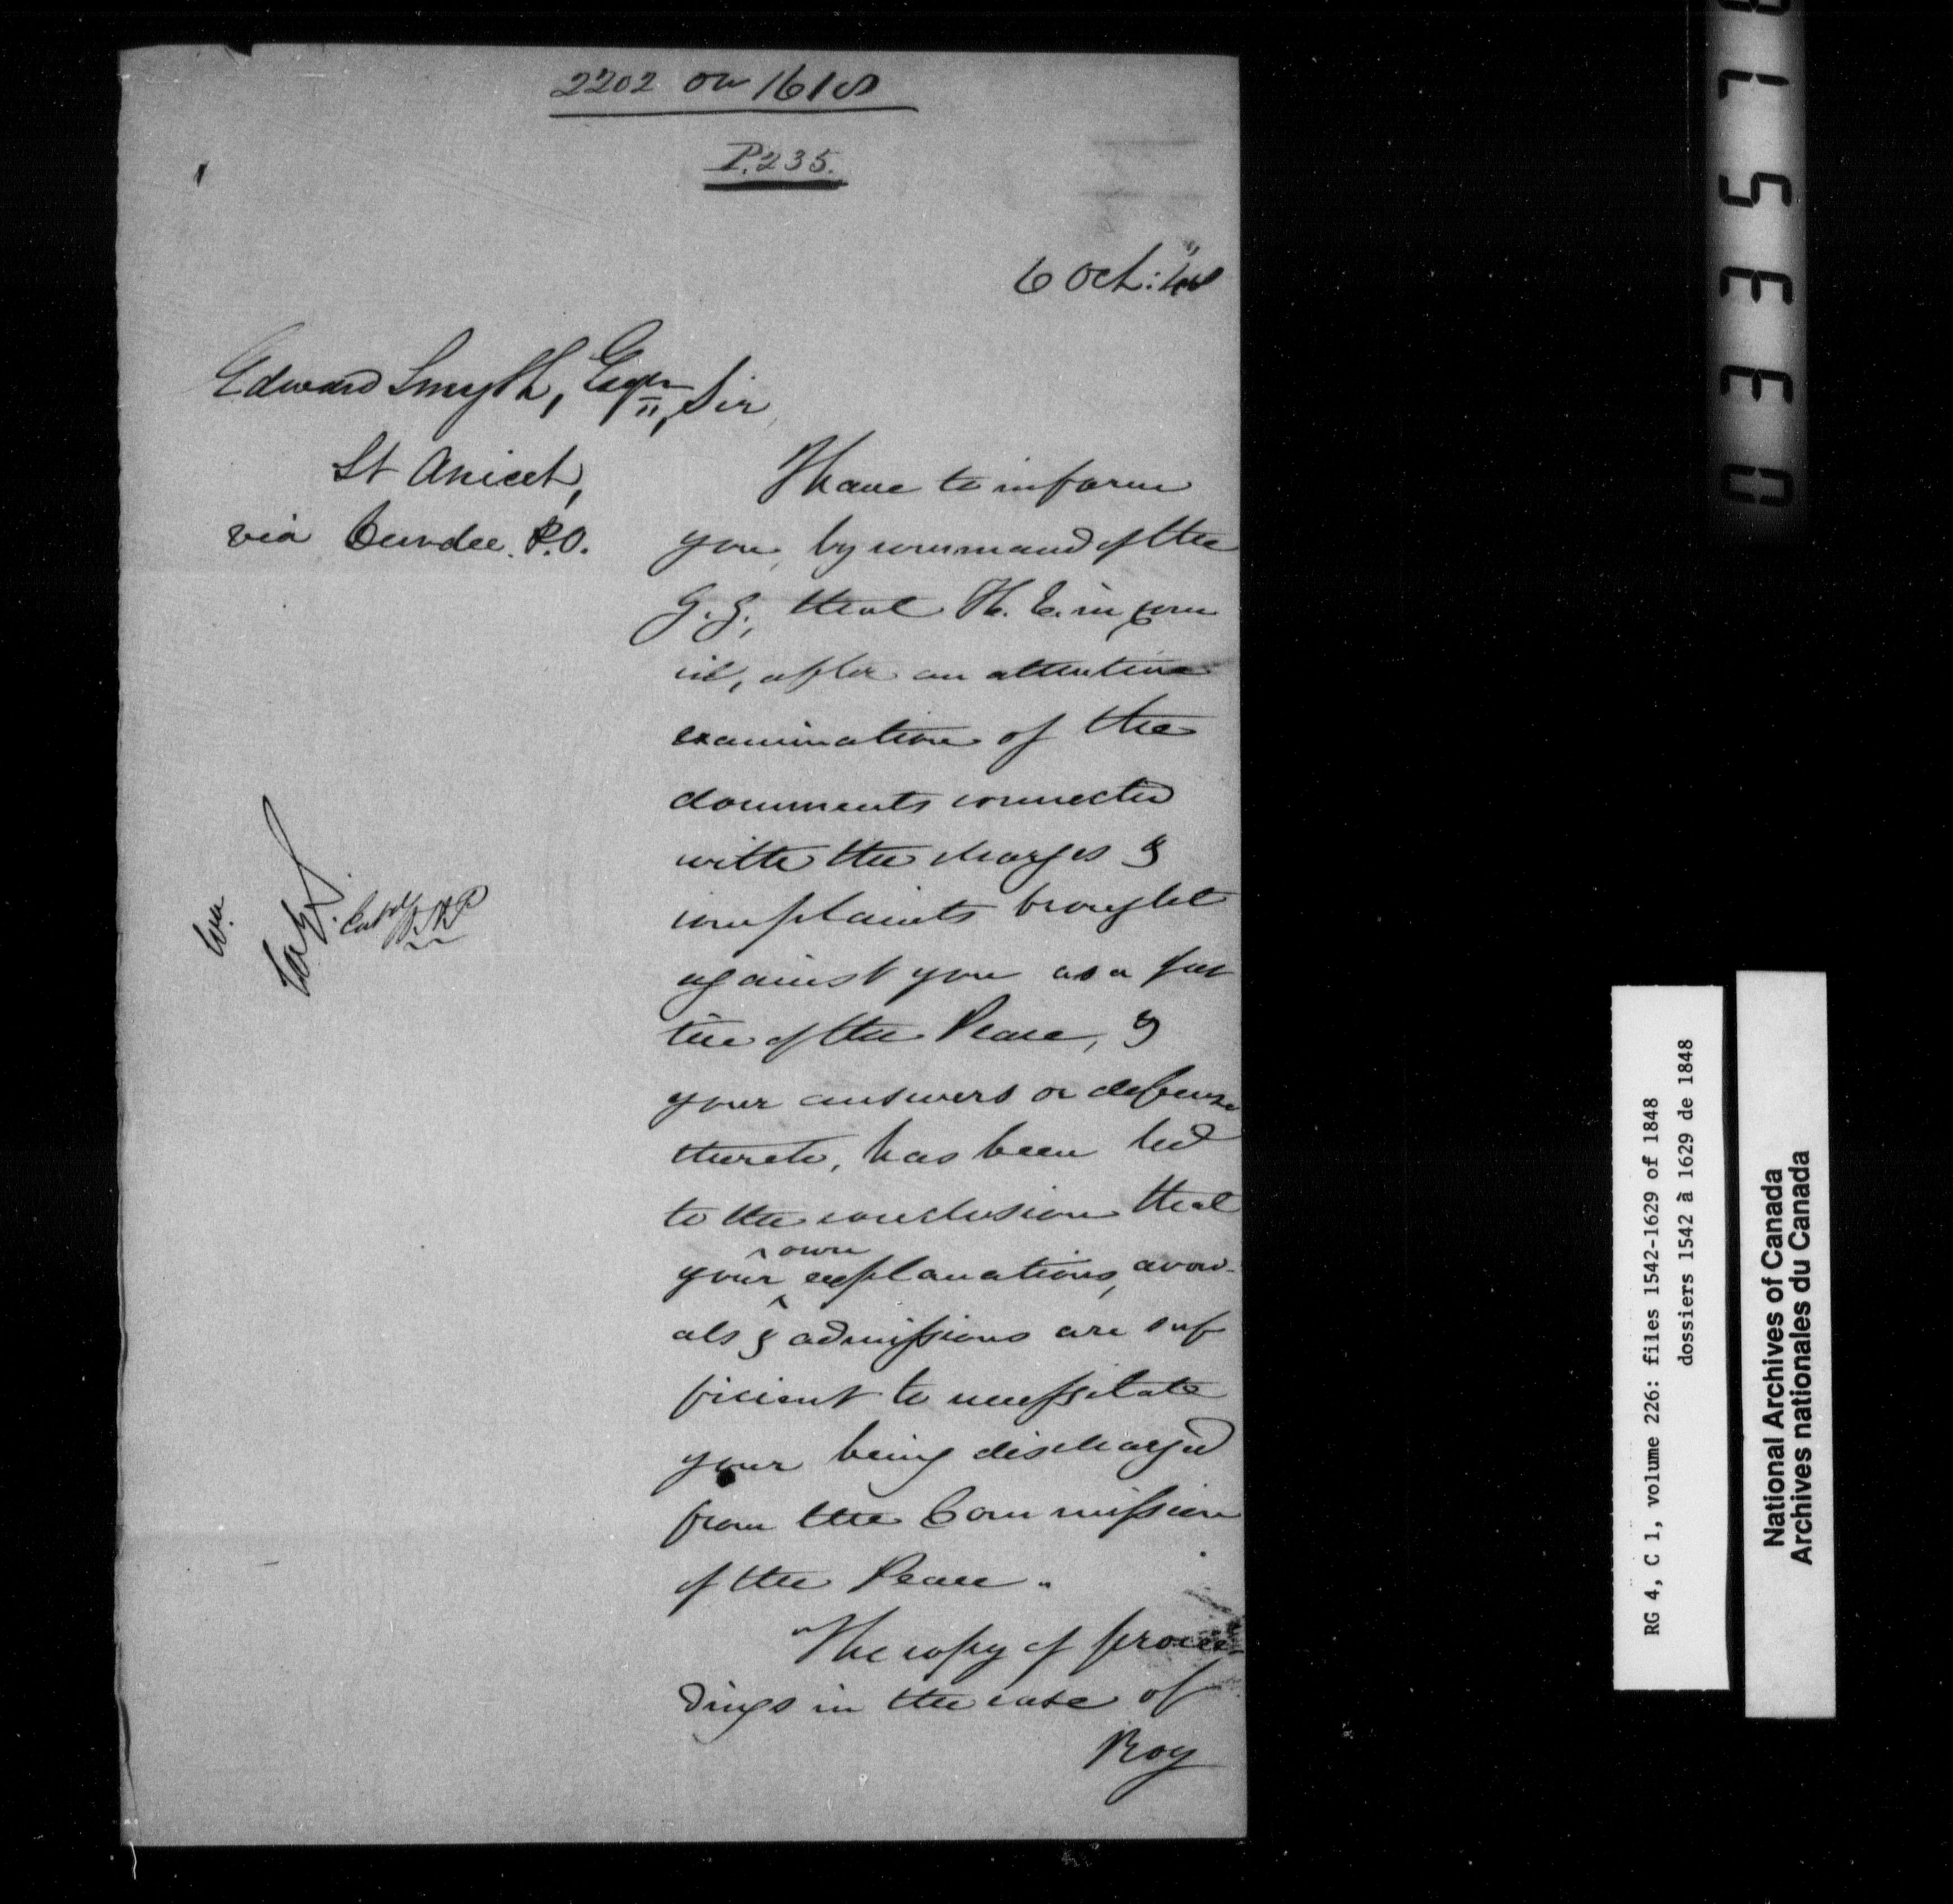 2202 on 1618
P. 235.
6 Oct: 48
Edward Smyth, Esqr
St Anicet,
via Dundee. P.O.
Sir,
I have to inform
you, by command of the
G. G., that H. E. in Coun
cil, after an attentive
examination of the
documents connected
with the charges &
complaints brought
against you as a Jus
tice of the Peace, &
your answers or defense
thereto, has been led
to the conclusion that
your own explanations, avow-
als & admissions are suf
ficient to necessitate
your being discharged
from the Commission
of the Peace.
The copy of procee
dings in the case of
Roy
RG 4, C 1, volume 226: files 1542-1629 of 1848
dossiers 1542 à 1629 de 1848
National Archives of Canada
Archives nationales du Canada